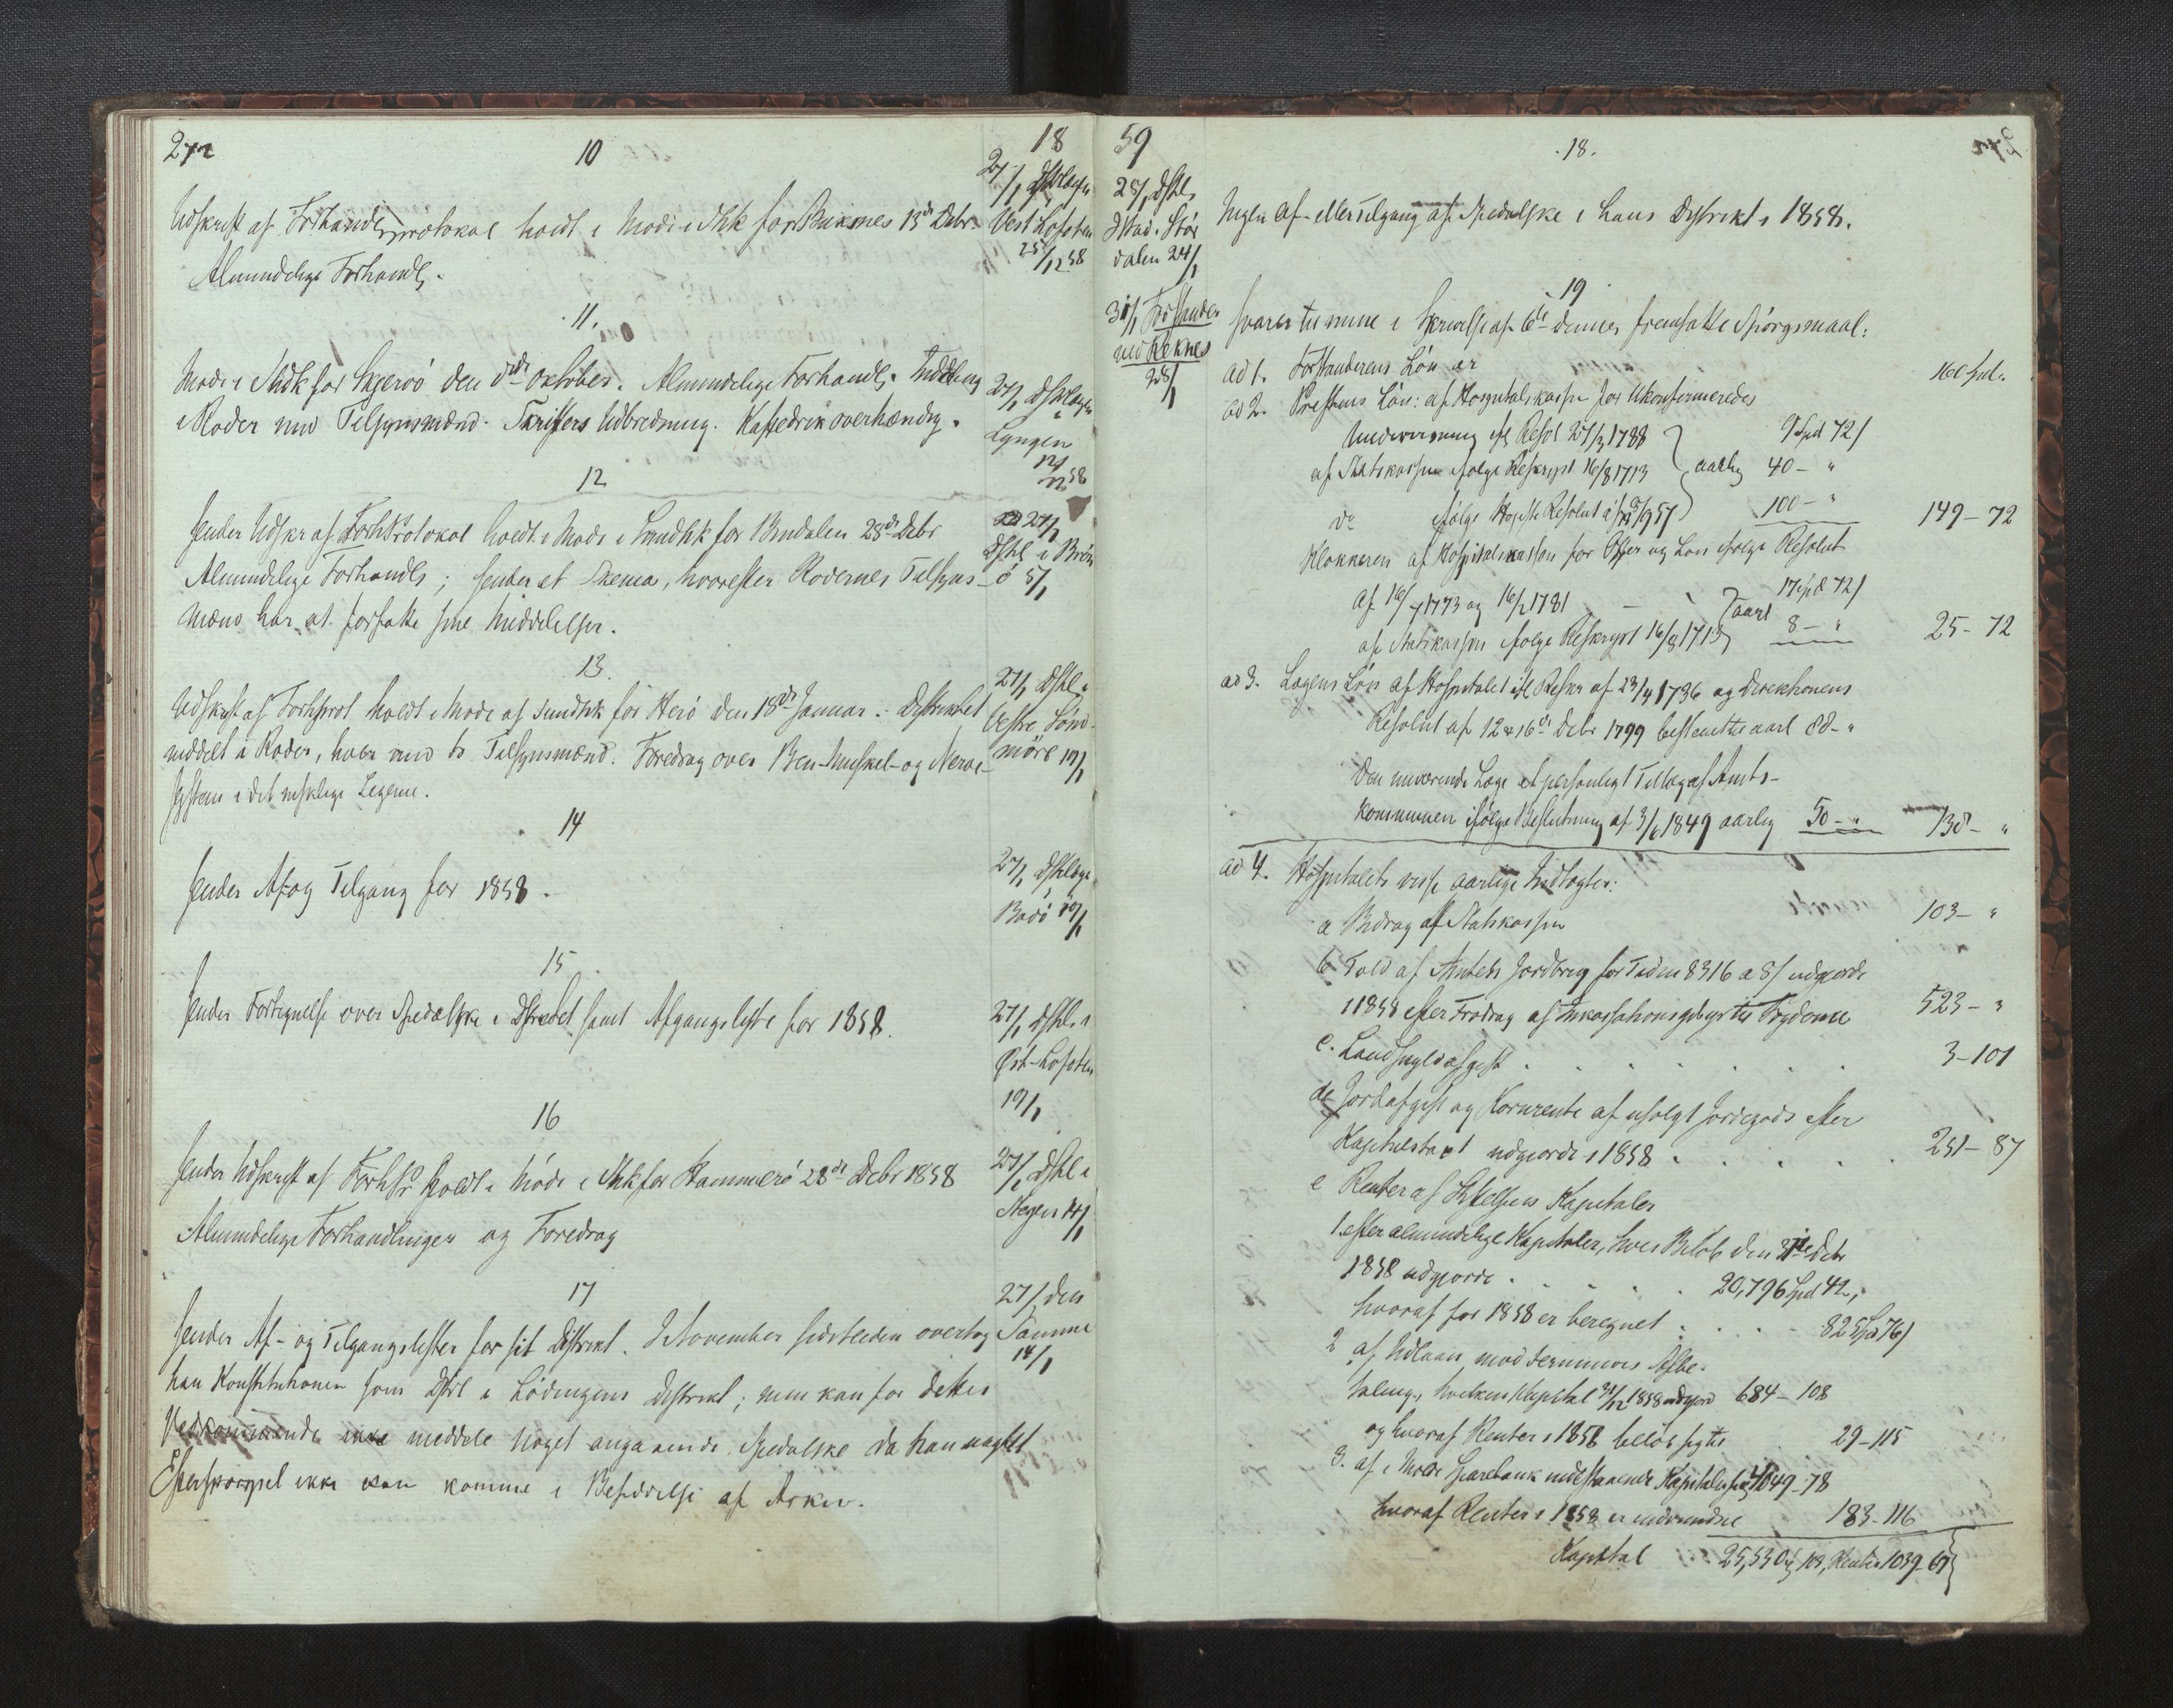 10
18
27/1 Dstrlæge
Vest-Lofoten
25/12 58
Udskrift af Forhandlprotokol holdt i Møde i Shk for Buksnes 13de Debr
Almindelige Forhandl.
11.
Møde i Shdk for Skjervö den October. Almindelige Forhandl. Inddeling
i Roder med Tilsynsmænd. Skrifters Udbredning. Kaffedrik overhændig.
27/1 Dstrlægen
Lyngen
58
12
Sender Udskr af ForhProtokol holdt i Møde i Sundhk for Bindalen 28de Debr
Almindelige Forhandls; sender et Skema, hvorefter Rodernes Tilsyns-
mænd har at forfatte sine Meddelelser.
27/1
Dstrl i Brön
ö 5/1
13.
Udskrift af Forhprot holdt i Mode af Sundhk for Herö den 18de Januar. Distriktet
inddelt i Roder, hver med to Tilsynsmænd. Foredrag over Ben-Muskel- og Nerve-
system i det msklige Legeme.
27/1 Dstrl i
Vestre Sönd-
möre 19/1
14
Sender Af- og Tilgang for 1858.
27/1 Dstrlæge
Bodö 19/1
15
Sender Fortegnelse over Spedalske i Dstrictet samt Afgangsliste for 1858.
27/1 Dstrl i
Öst-Lofoten
19/1
16
Sender Udskrift af Forhpr holdt i Möde i Shk for Hammerö 28de Debr 1858
Almindelige Forhandlinger og Foredrag
27/1 Dstrl i
Stegen 14/1
17
Sender Af- og Tilgangslister for sit Distrikt. I November sidstleden overtog
han Konstitutionen som Dstrl i Lödingens Distrikt; men kan for dettes
Vedkommende ikke meddele noget angaaende Spedalske da han uagtet
Efterspörgsel ikke kan komme i Besiddelse af Arkiv.
27/1 den
Samme
14/1
59
18.
28/1 Dstrl
Östad i Stör
dalen 24/1
Ingen Af- eller Tilgang af Spedalske i hans Distrikt i 1858.
19
31/1 Forstander
ved Reknes
28/1
Svarer til mine i Skrivelse af 6te dennes fremsatte Spörgsmaal:
ad 1. Forstanderens Lön er
160 Spd.
ad 2. Prestens Lön: af Hospitalskassen for Ukonfirmeredes
Underviisning ifl Resol 27/3 1788
9 Spd 72/
af Statskassen ifölge Reskript 16/8 1713
aarlig 40 - "
do ifölge Högste Resolut af 57
100 - "
149 - 72
Klokkeren af Hospitalskassen for Offer og Lön ifölge Resolut
af 16/7 1773 og 16/2 1781
17 Spd 72/
aarl
af Statskassen ifölge Reskript 16/8 1713
8 - "
25 - 72
ad 3. Lægens Lön af Hospitalet ifl Reskr af 23/4 1736 og Direktionens
Resolut af 12 & 16de Debr 1799 bestemte aarl 88 - "
Den nuværende Læge et personligt Tillæg af Amts-
kommunen ifölge Beslutning af 3/6 1849 aarlig 50 - "
138 - "
ad 4. Hospitalets visse aarlige Indtægter:
a Bidrag af Statskassen
103 - "
b Told af Amtets Jordbrug for Tiden 8316 a 8/ udgjorde
i 1858 efter Fradrag af Inkassationsgebyr til Fogderne
523 - "
c. Landskyldafgift . . . . .
3 - 101
d Jordafgift og Kornrente af usolgt Jordegods efter
Kapitelstaxt udgjorde i 1858 . . . .
251 - 87
e Renter af Stiftelsens Kapitaler
1. efter almindelige Kapitaler, hvis Belöb den 31te Debr
1858 udgjorde . . . . 20,796 Spd 42,
hvoraf for 1858 er beregnet . . . 825 Spd 76/
2 af Udlaan mod terminvis Afbe-
taling, hvilken Kapital 31/12 1858 udgjord 684 - 108
og hvoraf Renter i 1858 belöb sig til 29 - 115
3. af i Molde Sparebank indestaaende Kapitaler 4049 - 78
hvoraf Renter i 1858 er indvundne 183 - 116
Kapital 25,530 108, Renter 1039 - 67